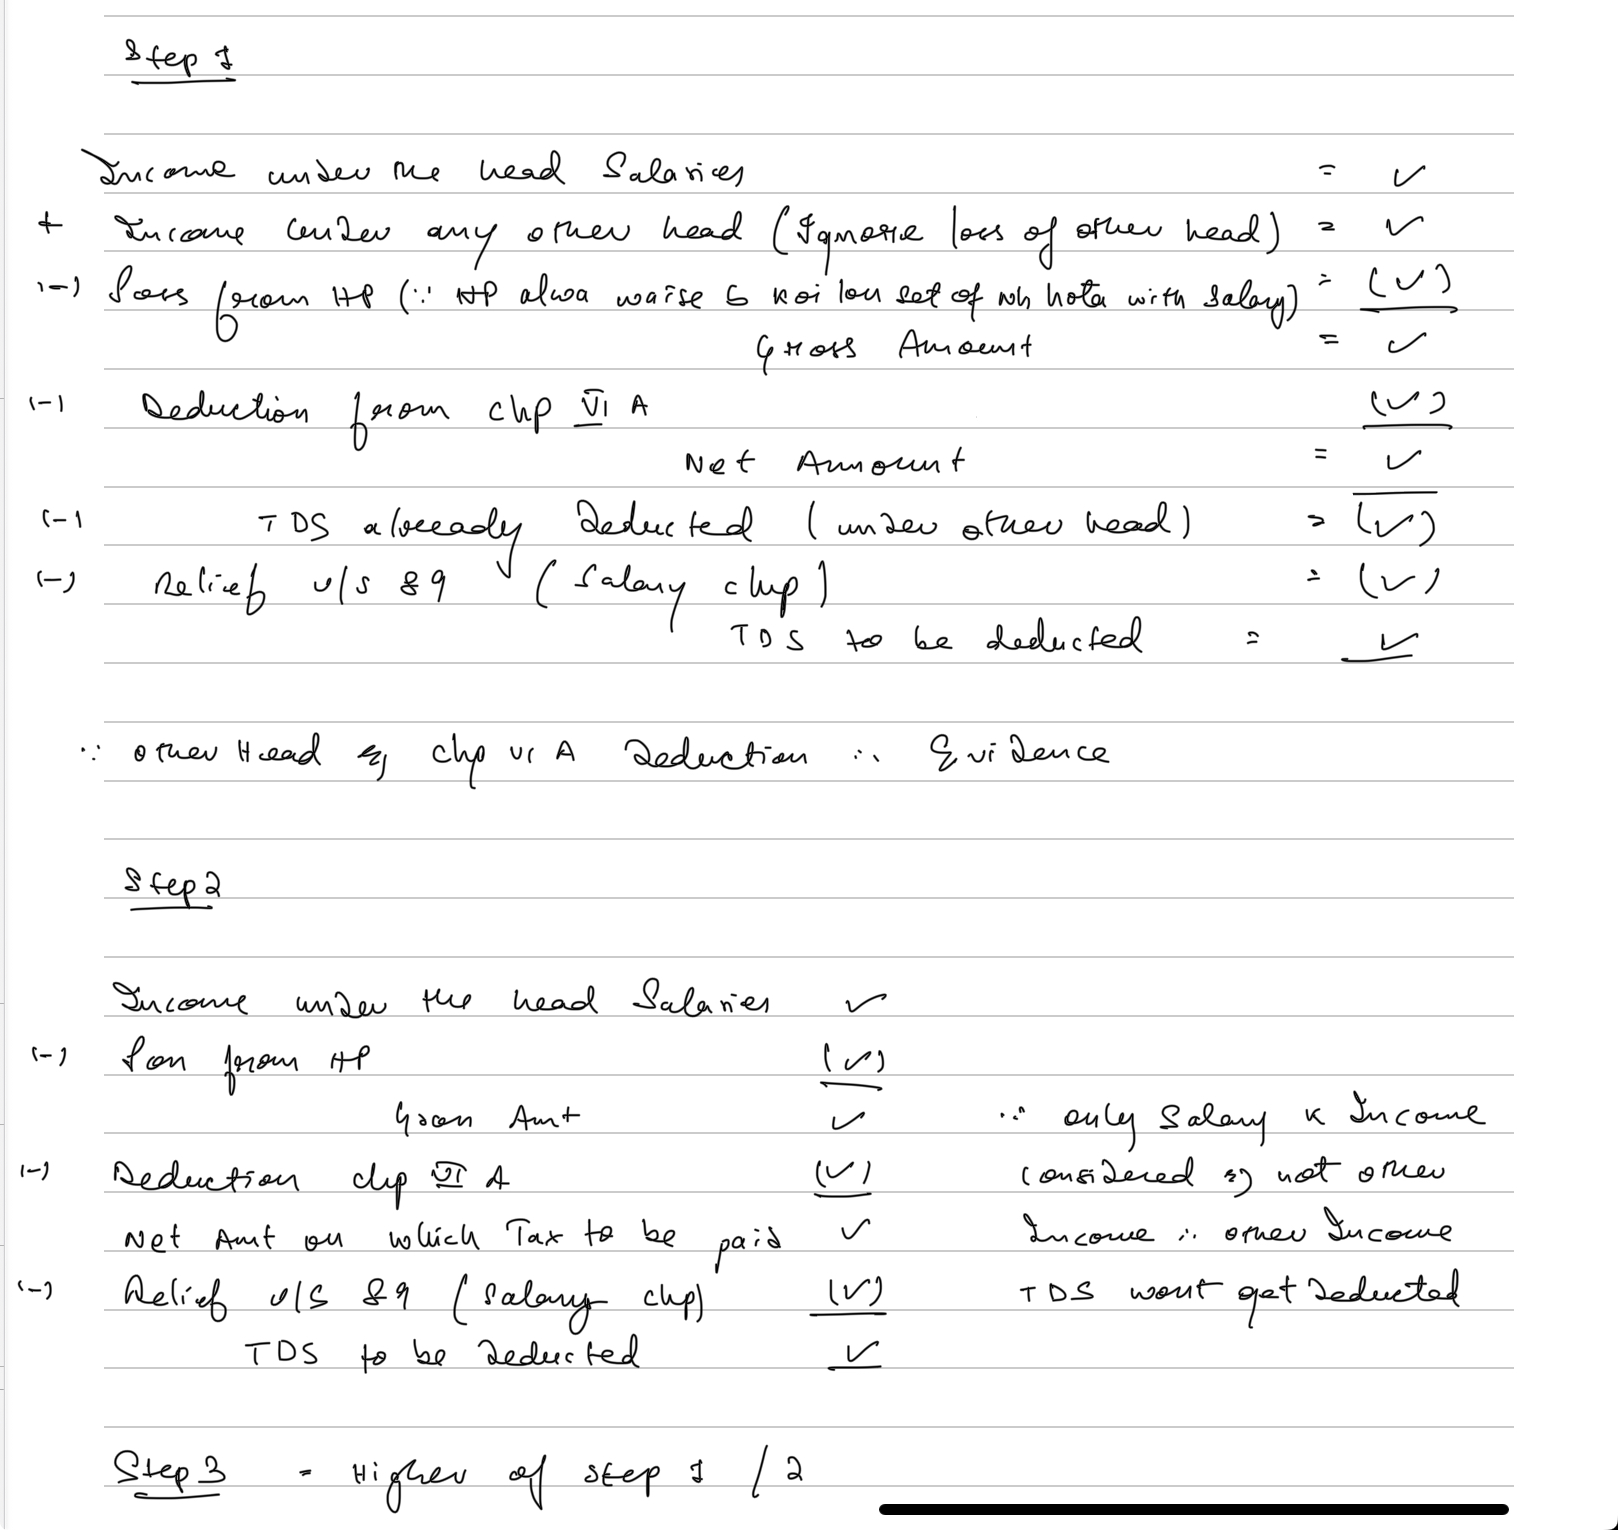 Step 1
Income under the head Salaries = ✓
+ Income under any other head (Ignore loss of other head) = ✓
(-) Loss from HP (∵ HP alwa waise b koi loss set of nh hota with salary) = (✓)
Gross Amount = ✓
(-) Deduction from chp VI A (✓)
Net Amount = ✓
(-) TDS already deducted (under other head) = (✓)
(-) Relief u/s 89 (Salary chp) = (✓)
TDS to be deducted = ✓
∵ other Head & chp VI A Deduction ∴ Evidence
Step 2
Income under the head Salaries ✓
(-) Loss from HP (✓)
Gross Amt ✓ ∵ only Salary k Income
(-) Deduction chp VI A (✓) considered & not other
Net Amt on which Tax to be paid ✓ Income ∴ other Income
(-) Relief u/s 89 (Salary chp) (✓) TDS wont get deducted
TDS to be deducted ✓
Step 3 = Higher of step 1 / 2